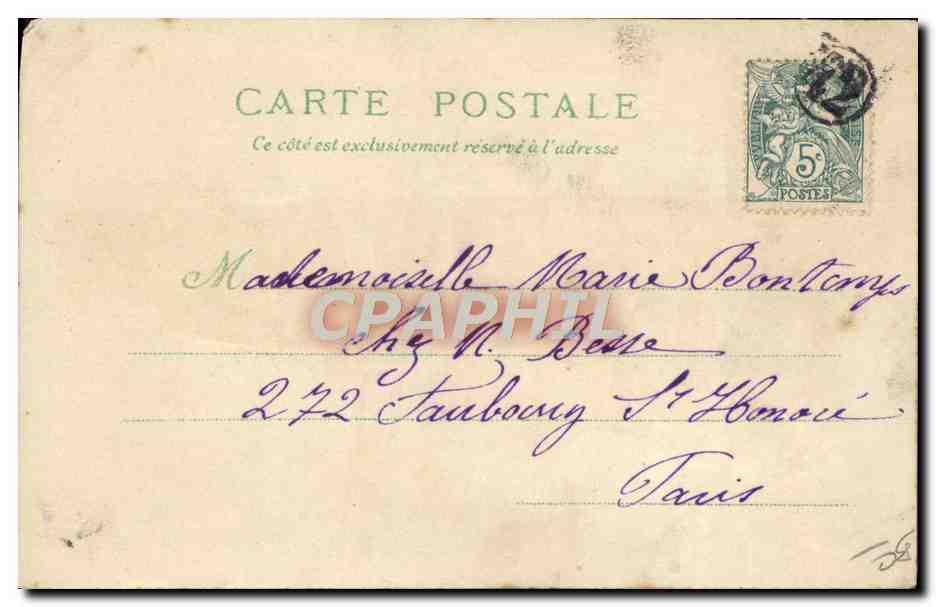 CARTE POSTALE
Ce côté est exclusivement réservé à l'adresse
42
5c
POSTES
Mademoiselle Marie Bontemps
CPAPHIL
chez M. Besse
272 Faubourg St Honoré
Paris